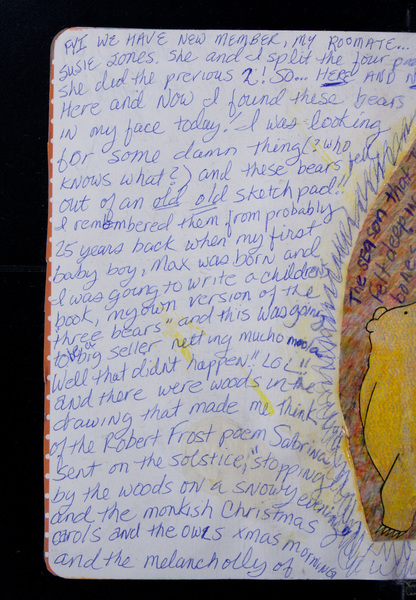 FYI WE HAVE NEW MEMBER, MY ROOMATE...
SUSIE ZONES. She and I split the four
she did the previous 2! SO... HERE AND
Here and NOW I found these bears
in my face today! I was looking
for some damn thing (? who
knows what?) and these bears fell
out of an old old sketchpad!!
I remembered them from probably
25 years back when my first
baby boy, Max was born and
I was going to write a children's
book, my own version of the
three bears" and this was going
to be a big seller netting mucho moola
Well that didnt happen" LOL"
and there were woods in the
drawing that made me think
of the Robert Frost poem Sabrina
sent on the solstice, "stopping
by the woods on a snowy evening
and the monkish Christmas
carols and the owls xmas morning
and the melancholly of
The season that
felt deep in
bones